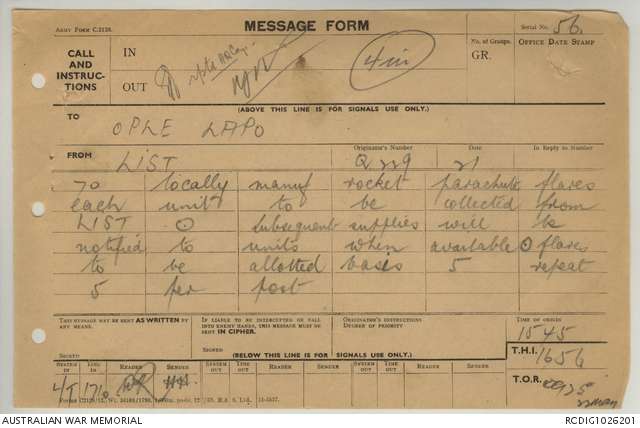 ARMY FORM C.2128.
MESSAGE FORM
Serial No. 56
CALL AND INSTRUCTIONS
IN
OUT
4 in
No. of Groups.
GR.
OFFICE DATE STAMP
(ABOVE THIS LINE IS FOR SIGNALS USE ONLY.)
TO
OPLE LAPO
FROM
LIST
Originator's Number
Q 229
Date
21
In Reply to Number
70 locally manuf rocket parachute flares
each unit to be collected from
LIST ⊙ subsequent supplies will be
notified to units when available ⊙ flares
to be allotted basis 5 repeat
5 per post
THIS MESSAGE MAY BE SENT AS WRITTEN BY ANY MEANS.
SIGNED
IF LIABLE TO BE INTERCEPTED OR FALL INTO ENEMY HANDS, THIS MESSAGE MUST BE SENT IN CIPHER.
SIGNED
ORIGINATOR'S INSTRUCTIONS
DEGREE OF PRIORITY
TIME OF ORIGIN
1545
(BELOW THIS LINE IS FOR SIGNALS USE ONLY.)
T.H.I. 1656
SYSTEM IN
TIME IN
READER
SENDER
SYSTEM OUT
TIME OUT
READER
SENDER
SYSTEM OUT
TIME OUT
READER
SENDER
T.O.R.
1710
AUSTRALIAN WAR MEMORIAL
RCDIG1026201